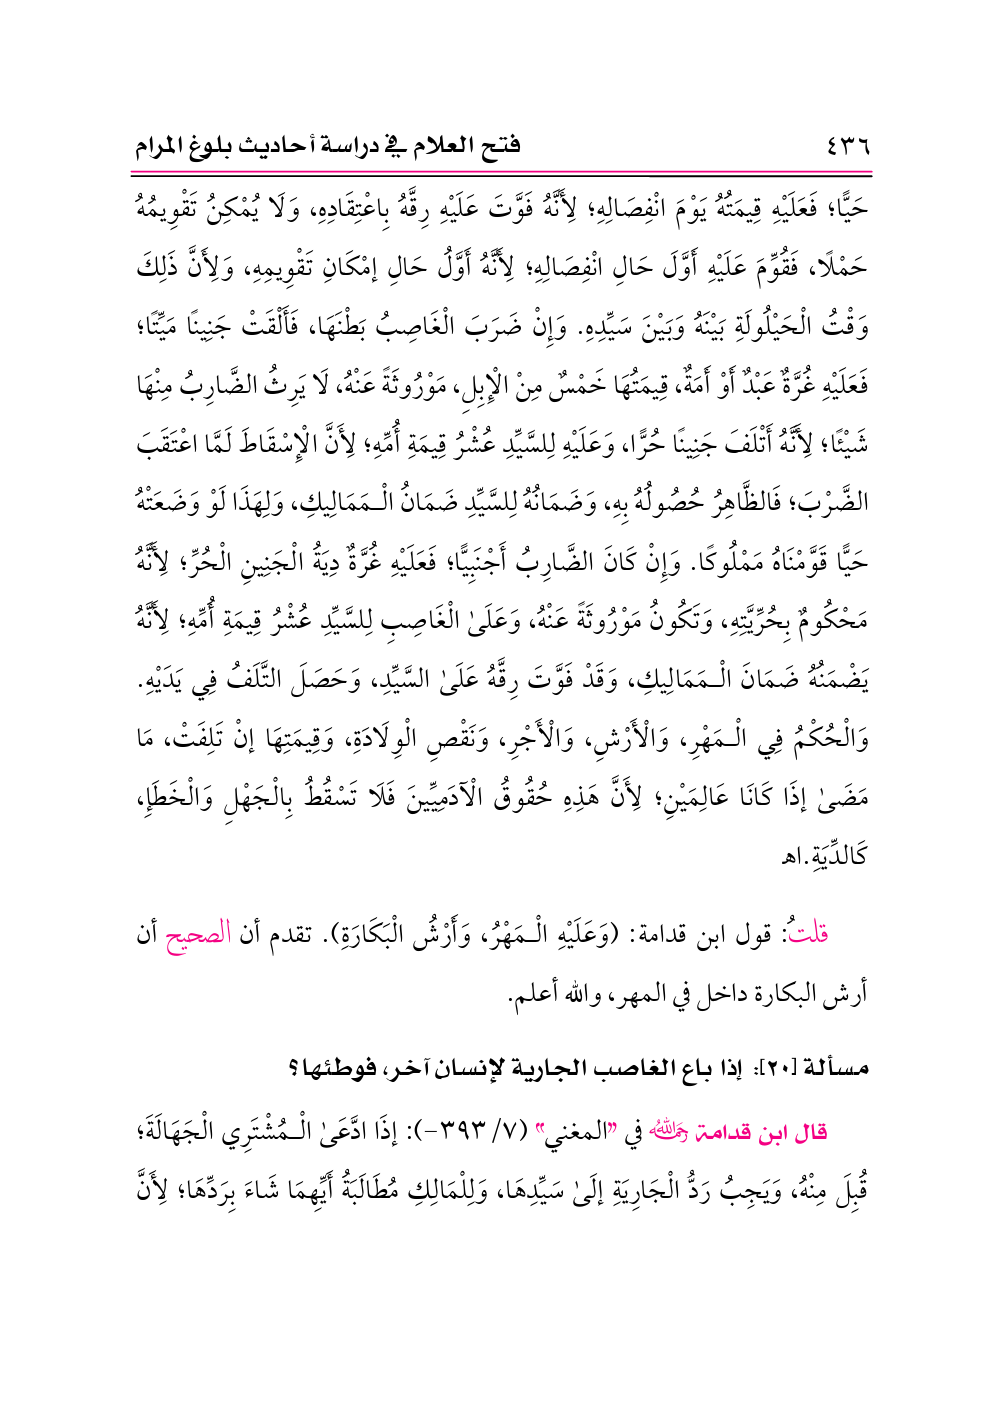 ٤٣٦ فتح العلام في دراسة أحاديث بلوغ المرام
حَيًّا؛ فَعَلَيْهِ قِيمَتُهُ يَوْمَ انْفِصَالِهِ؛ لِأَنَّهُ فَوَّتَ عَلَيْهِ رِقَّهُ بِاعْتِقَادِهِ، وَلَا يُمْكِنُ تَقْوِيمُهُ
حَمْلًا، فَقُوِّمَ عَلَيْهِ أَوَّلَ حَالِ انْفِصَالِهِ؛ لِأَنَّهُ أَوَّلُ حَالِ إمْكَانِ تَقْوِيمِهِ، وَلِأَنَّ ذَلِكَ
وَقْتُ الْحَيْلُولَةِ بَيْنَهُ وَبَيْنَ سَيِّدِهِ. وَإِنْ ضَرَبَ الْغَاصِبُ بَطْنَهَا، فَأَلْقَتْ جَنِينًا مَيِّتًا؛
فَعَلَيْهِ غُرَّةٌ عَبْدٌ أَوْ أَمَةٌ، قِيمَتُهَا خَمْسٌ مِنْ الْإِبِلِ، مَوْرُوثَةً عَنْهُ، لَا يَرِثُ الضَّارِبُ مِنْهَا
شَيْئًا؛ لِأَنَّهُ أَتْلَفَ جَنِينًا حُرًّا، وَعَلَيْهِ لِلسَّيِّدِ عُشْرُ قِيمَةِ أُمِّهِ؛ لِأَنَّ الْإِسْقَاطَ لَمَّا اعْتَقَبَ
الضَّرْبَ؛ فَالظَّاهِرُ حُصُولُهُ بِهِ، وَضَمَانُهُ لِلسَّيِّدِ ضَمَانُ الْـمَمَالِيكِ، وَلِهَذَا لَوْ وَضَعَتْهُ
حَيًّا قَوَّمْنَاهُ مَمْلُوكًا. وَإِنْ كَانَ الضَّارِبُ أَجْنَبِيًّا؛ فَعَلَيْهِ غُرَّةٌ دِيَةُ الْجَنِينِ الْحُرِّ؛ لِأَنَّهُ
مَحْكُومٌ بِحُرِّيَّتِهِ، وَتَكُونُ مَوْرُوثَةً عَنْهُ، وَعَلَىٰ الْغَاصِبِ لِلسَّيِّدِ عُشْرُ قِيمَةِ أُمِّهِ؛ لِأَنَّهُ
يَضْمَنُهُ ضَمَانَ الْـمَمَالِيكِ، وَقَدْ فَوَّتَ رِقَّهُ عَلَىٰ السَّيِّدِ، وَحَصَلَ التَّلَفُ فِي يَدَيْهِ.
وَالْحُكْمُ فِي الْـمَهْرِ، وَالْأَرْشِ، وَالْأَجْرِ، وَنَقْصِ الْوِلَادَةِ، وَقِيمَتِهَا إنْ تَلِفَتْ، مَا
مَضَىٰ إذَا كَانَا عَالِمَيْنِ؛ لِأَنَّ هَذِهِ حُقُوقُ الْآدَمِيِّينَ فَلَا تَسْقُطُ بِالْجَهْلِ وَالْخَطَإِ،
كَالدِّيَةِ.اهـ
قلتُ: قول ابن قدامة: (وَعَلَيْهِ الْـمَهْرُ، وَأَرْشُ الْبَكَارَةِ). تقدم أن الصحيح أن
أرش البكارة داخل في المهر، والله أعلم.
مسألة [٢٠]: إذا باع الغاصب الجارية لإنسان آخر، فوطئها؟
قال ابن قدامة رحمه الله في "المغني" (٧/ ٣٩٣-): إذَا ادَّعَىٰ الْـمُشْتَرِي الْجَهَالَةَ؛
قُبِلَ مِنْهُ، وَيَجِبُ رَدُّ الْجَارِيَةِ إلَىٰ سَيِّدِهَا، وَلِلْمَالِكِ مُطَالَبَةُ أَيِّهِمَا شَاءَ بِرَدِّهَا؛ لِأَنَّ